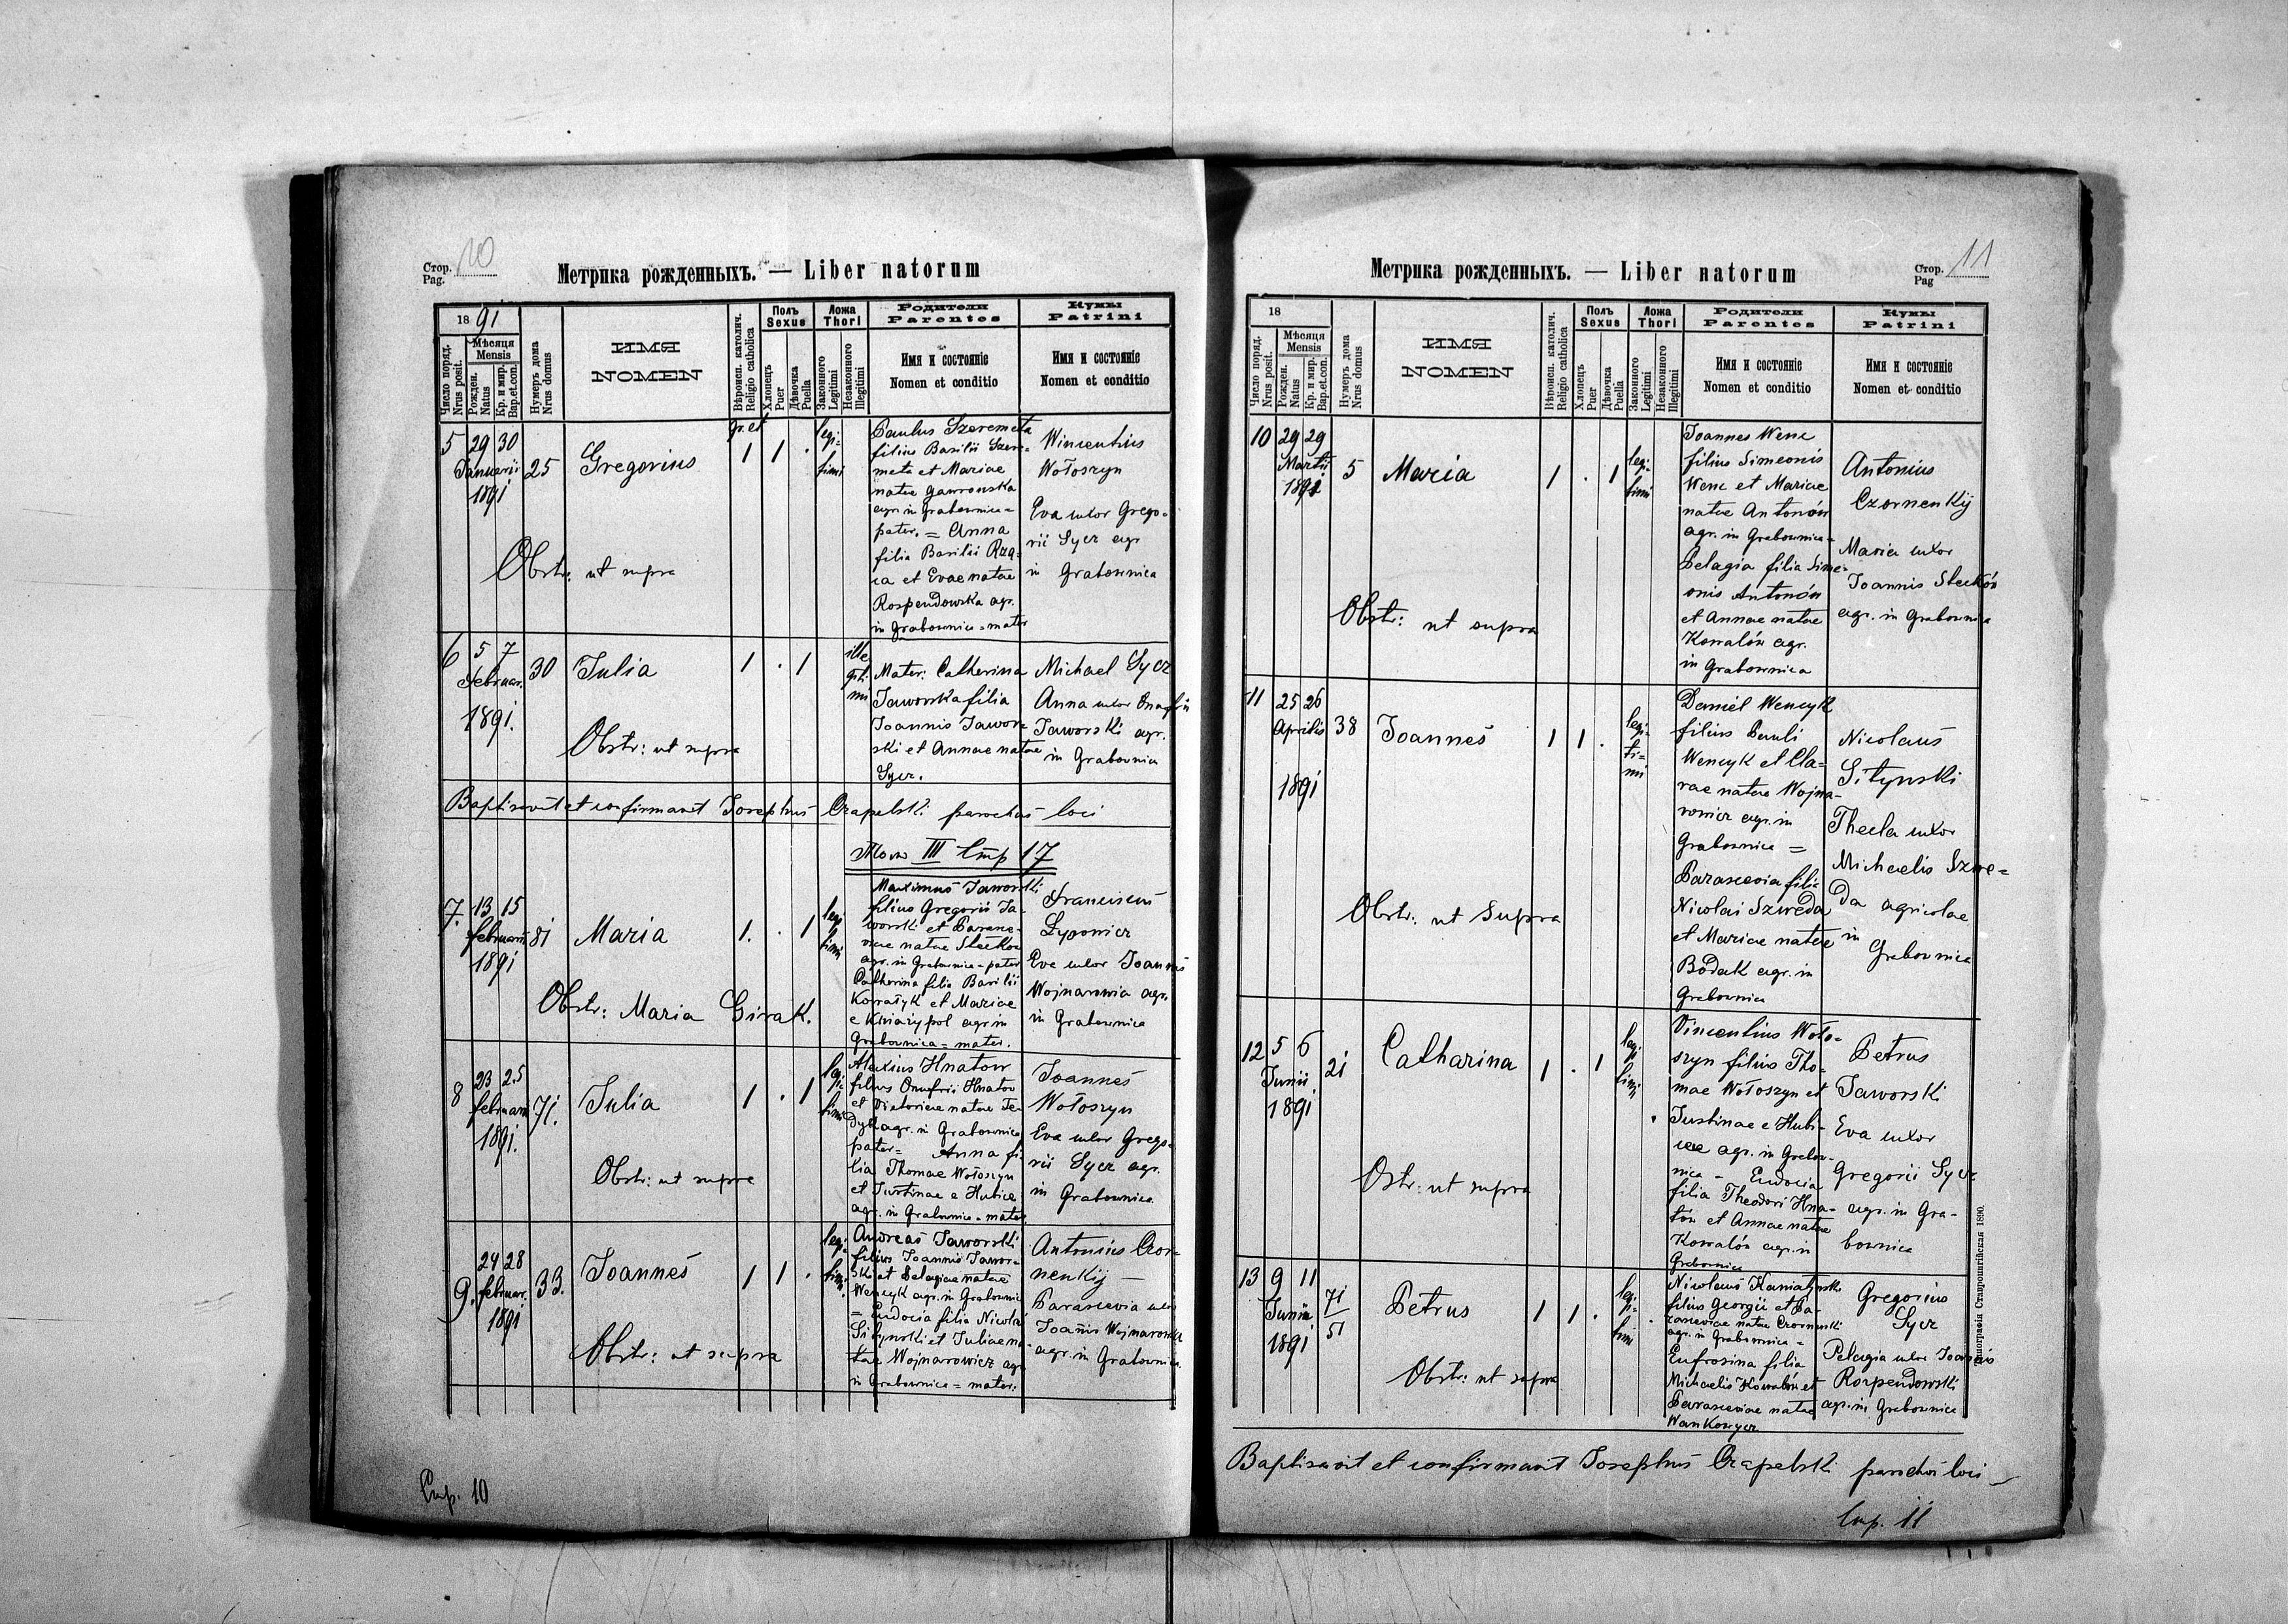 Стор.
Pag. 10
Метрика рожденныхъ. — Liber natorum
18 91
Число поряд.
Nrus posit.
Мѣсяця
Mensis
Рожден.
Natus
Кр. и мир.
Bap.et.con.
Нумеръ дома
Nrus domus
ИМЯ
NOMEN
Вѣроисп. католич.
Religio catholica
Полъ
Sexus
Хлопецъ
Puer
Дѣвочка
Puella
Ложа
Thori
Законного
Legitimi
Незаконного
Illegitimi
Родители
Parentes
Имя и состояніе
Nomen et conditio
Кумы
Patrini
Имя и состояніе
Nomen et conditio
5 29 30
Januarii
1891
25 Gregorius
gr. ct
1 1 .
legi-
timi
Paulus Szeremeta
filius Basilii Szere-
meta et Mariae
natae Gawronska
agr. in Grabownica =
pater. = Anna
filia Basilii Rzą-
ca et Evae natae
Rospendowska agr.
in Grabownica = mater
Wincentius
Wołoszyn
Eva uxor Grego-
rii Sycz agr
in Grabownica
Obstr: ut supra
6 5 7
Februar.
1891.
30 Julia
1 . 1
ille
giti
mi
Mater: Catherina
Jaworska filia
Joannis Jawor-
ski et Annae natae
Sycz.
Michael Sycz
Anna uxor Onufrii
Jaworski agr.
in Grabownica
Obstr: ut supra
Baptisavit et confirmavit Josephus Czapelski parochus loci
Том III стр 17
7. 13 15
februarii
1891
81 Maria
1. . 1
legi
timi
Maximus Jaworski
filius Gregorii Ja-
worski et Parasce-
viae natae Steckow
agr. in Grabownica = pater
Catherina filia Basilii
Kowalyk et Mariae
e Kniażypol agr in
Grabownica = mater.
Franciscus
Lypowicz
Eva uxor Joannis
Wojnarowicz agr.
in Grabownica
Obstr: Maria Girrak.
8 23 25
februarii
1891.
71. Julia
1 . 1
legi-
timi
Alexius Hnatow
filius Onufrii Hnatow
et Victoriae natae Fe-
dyk agr. in Grabownica
pater = Anna fi
lia Thomae Wołoszyn
et Justinae e Hubice
agr. in Grabownica = mater
Joannes
Wołoszyn
Eva uxor Grego-
rii Sycz agr.
in Grabownica
Obstr: ut supra
9. 24 28
februar.
1891
33. Joannes
1 1 .
legi-
timi.
Andreas Jaworski
filius Joannis Jawor-
ski et Pelagiae natae
Wencyk agr. in Grabownica
= Eudocia filia Nicolai
Sitynski et Juliae na
tae Wojnarowicz agr
in Grabownica = mater.
Antonius Czor-
nenkij —
Parascevia uxor
Joannis Wojnarowicz
agr. in Grabownica.
Obstr: ut supra
Стр. 10
Метрика рожденныхъ. — Liber natorum
Стор.
Pag 11
18
Число поряд.
Nrus posit.
Мѣсяця
Mensis
Рожден.
Natus
Кр. и мир.
Bap.et.con.
Нумеръ дома
Nrus domus
ИМЯ
NOMEN
Вѣроисп. католич.
Religio catholica
Полъ
Sexus
Хлопецъ
Puer
Дѣвочка
Puella
Ложа
Thori
Законного
Legitimi
Незаконного
Illegitimi
Родители
Parentes
Имя и состояніе
Nomen et conditio
Кумы
Patrini
Имя и состояніе
Nomen et conditio
10 29 29
Martii
1891
5 Maria
1 . 1
legi-
timi
Joannes Wenc
filius Simeonis
Wenc et Mariae
natae Antonów
agr. in Grabownica =
Pelagia filia Sime-
onis Antonów
et Annae natae
Kowalów agr.
in Grabownica
Antonius
Czornenkij
Maria uxor
Joannis Stecków
agr. in Grabownica
Obstr: ut supra
11 25 26
Aprilis
1891
38 Joannes
1 1 .
legi-
ti-
mi
Daniel Wencyk
filius Pauli
Wencyk et Cla-
rae natae Wojna-
rowicz agr. in
Grabownica =
Parascevia filia
Nicolai Szweda
et Mariae natae
Bodak agr. in
Grabownica
Nicolaus
Sitynski
Thecla uxor
Michaelis Szwe-
da agricolae
in
Grabownica
Obstr: ut supra
12 5 6
Junii
1891
21 Catharina
1 . 1
legi
timi
Vincentius Woło-
szyn filius Tho-
mae Wołoszyn et
Justinae e Hubi-
cae agr. in Grabow-
nica - Eudocia
filia Theodori Hna-
tów et Annae natae
Kowalów agr. in
Grabownica
Petrus
Jaworski
Eva uxor
Gregorii Sycz
agr. in Gra-
bownica
Ostr: ut supra
13 9 11
Junii
1891
71
51
Petrus
1 1 .
legi-
timi
Nicolaus Kaniatynski
filius Georgii et Pa-
rasceviae natae Czornenki
agr. in Grabownica =
Eufrosina filia
Michaelis Kowalów et
Parasceviae natae
Wankowycz
Gregorius
Sycz
Pelagia uxor Joannis
Rospendowski
agr. in Grabownica
Obstr: ut supra
Baptisavit et confirmavit Josephus Czapelski parochus loci
Стр. 11
Типографія Ставропигійская 1890.